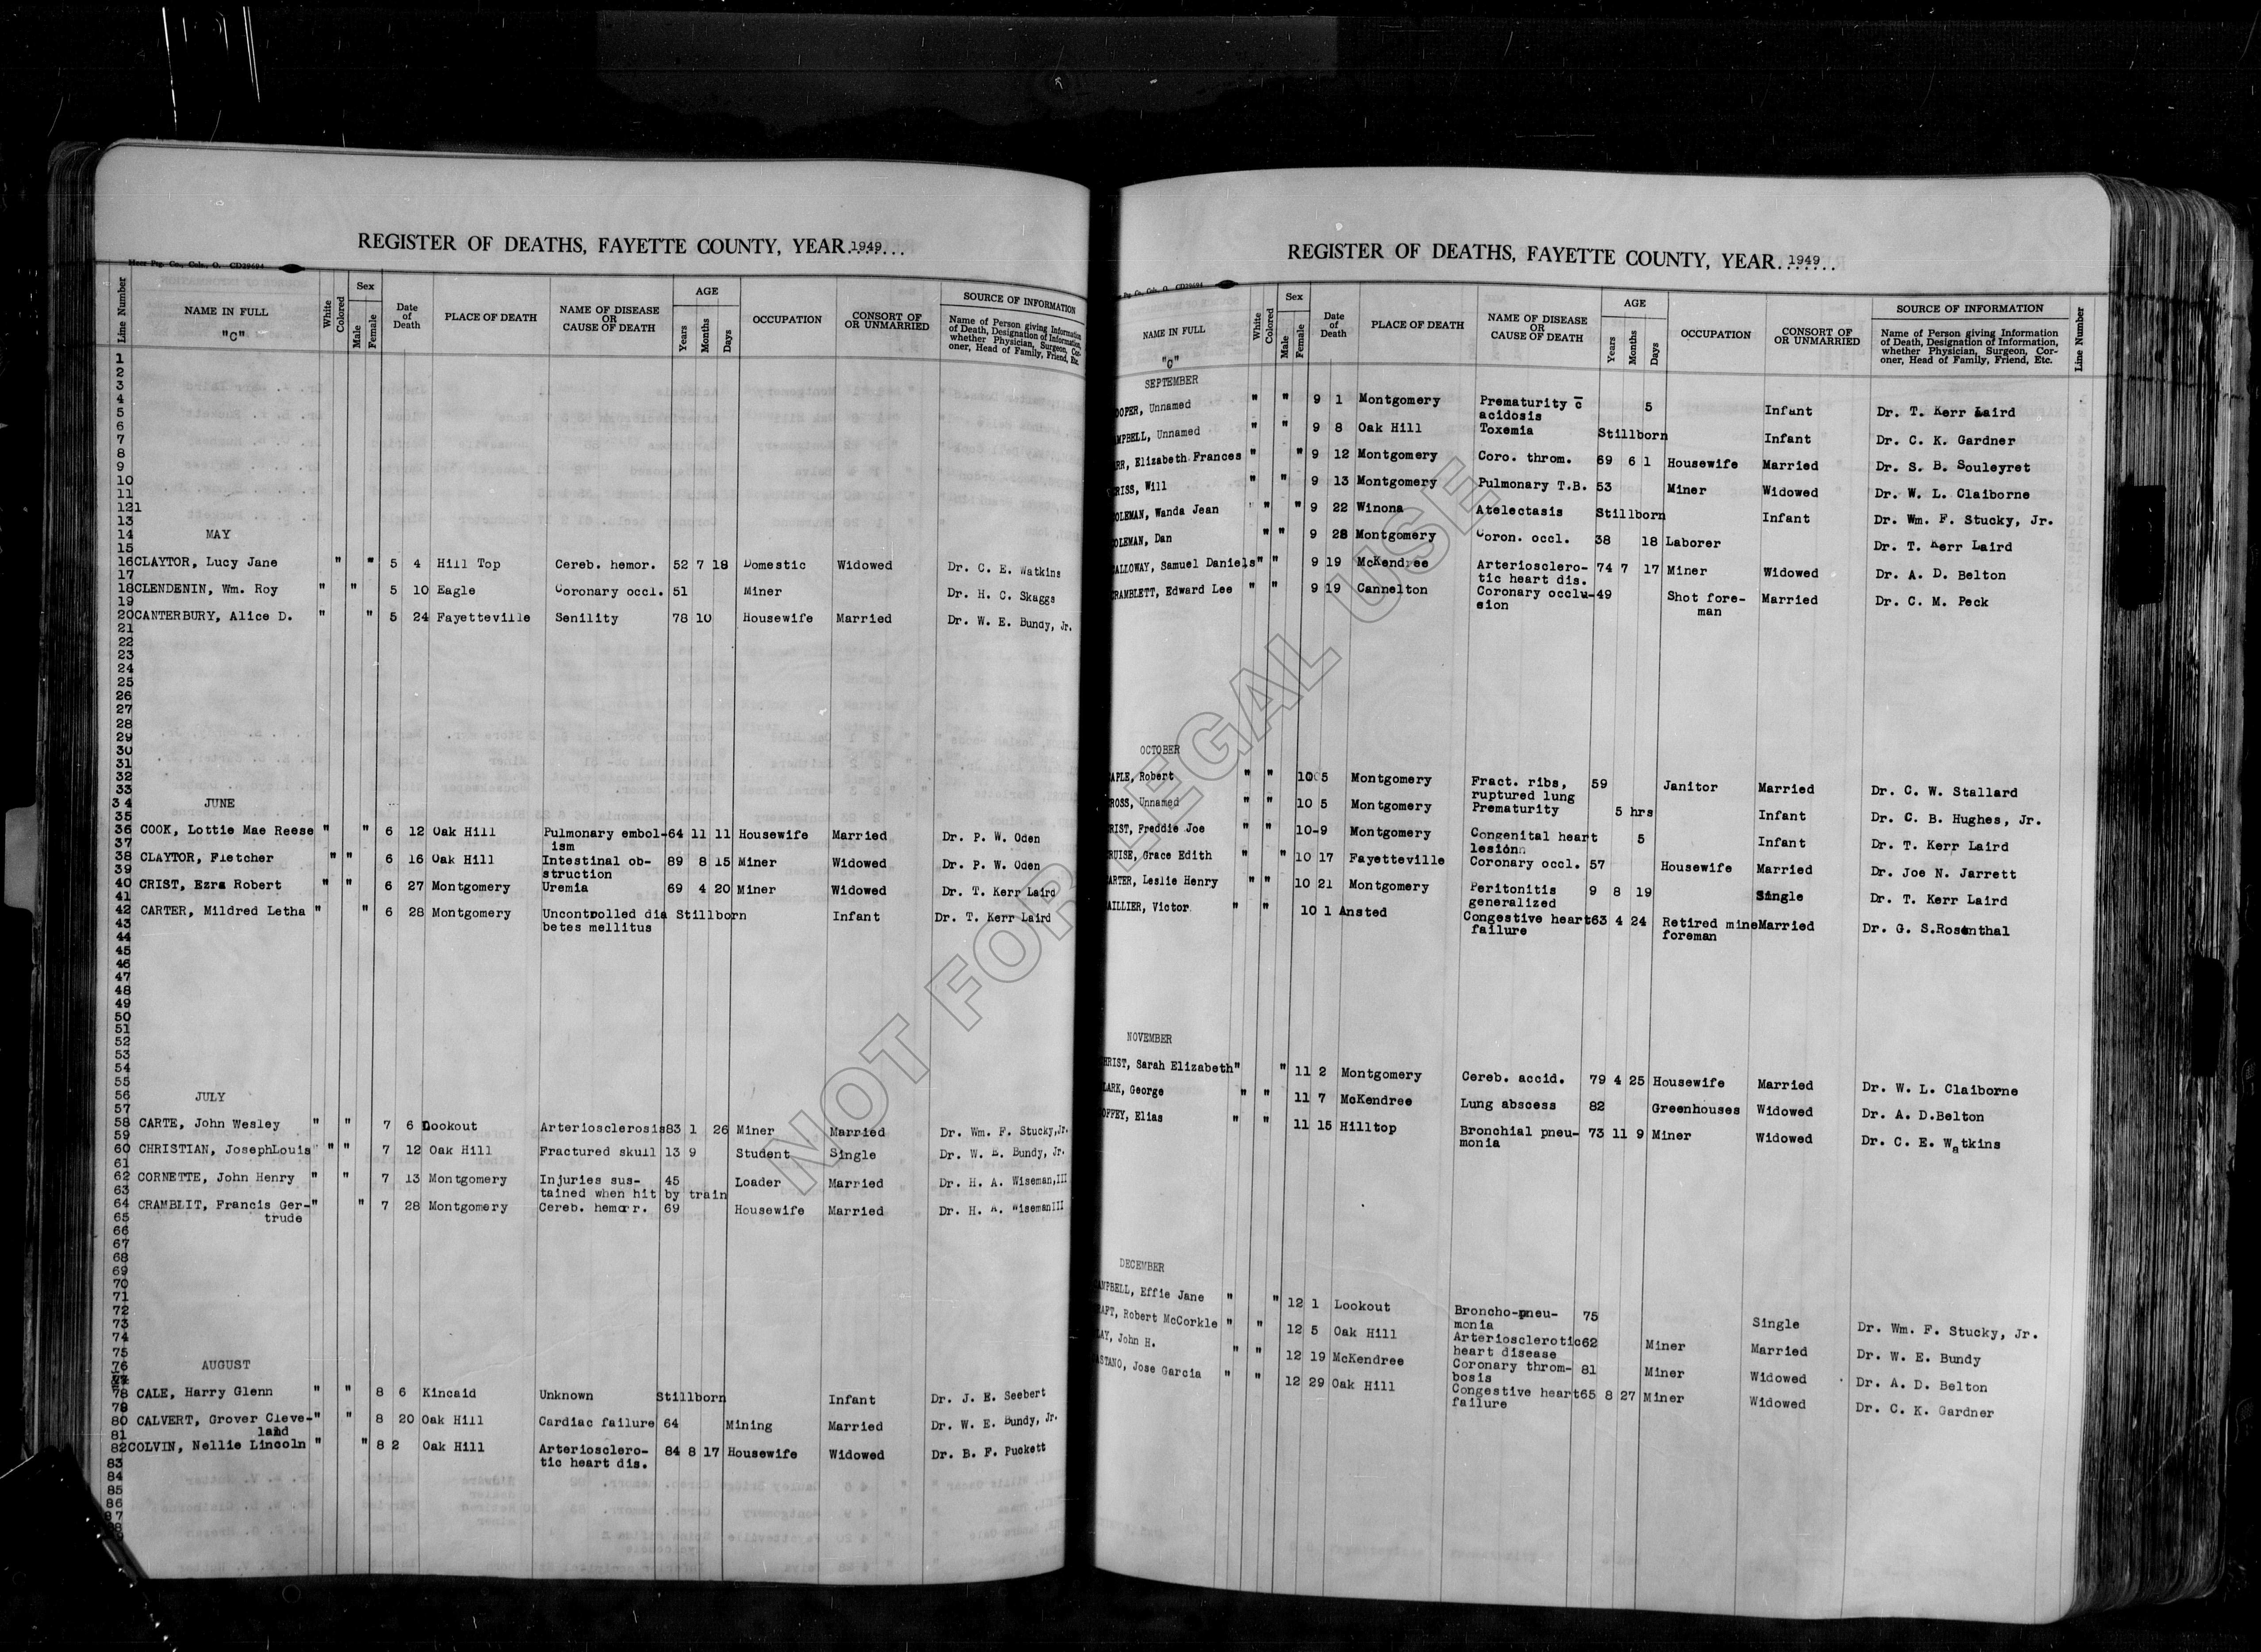 REGISTER OF DEATHS, FAYETTE COUNTY, YEAR 1949
Heer Ptg. Co., Cols., O. CD39694
Line Number
NAME IN FULL
"C"
White
Colored
Sex
Male
Female
Date of Death
PLACE OF DEATH
NAME OF DISEASE OR CAUSE OF DEATH
AGE
Years
Months
Days
OCCUPATION
CONSORT OF OR UNMARRIED
SOURCE OF INFORMATION
Name of Person giving Information of Death, Designation of Information, whether Physician, Surgeon, Coroner, Head of Family, Friend, Etc.
1
2
3
4
5
6
7
8
9
10
11
121
13
14 MAY
15
16 CLAYTOR, Lucy Jane " " 5 4 Hill Top Cereb. hemor. 52 7 18 Domestic Widowed Dr. C. E. Watkins
17
18 CLENDENIN, Wm. Roy " " 5 10 Eagle Coronary occl. 51 Miner Dr. H. C. Skaggs
19
20 CANTERBURY, Alice D. " " 5 24 Fayetteville Senility 78 10 Housewife Married Dr. W. E. Bundy, Jr.
21
22
23
24
25
26
27
28
29
30
31
32
33
34 JUNE
35
36 COOK, Lottie Mae Reese " " 6 12 Oak Hill Pulmonary embol- 64 11 11 Housewife Married Dr. P. W. Oden
37 ism
38 CLAYTOR, Fletcher " " 6 16 Oak Hill Intestinal ob- 89 8 15 Miner Widowed Dr. P. W. Oden
39 struction
40 CRIST, Ezra Robert " " 6 27 Montgomery Uremia 69 4 20 Miner Widowed Dr. T. Kerr Laird
41
42 CARTER, Mildred Letha " " 6 28 Montgomery Uncontrolled dia Stillborn Infant Dr. T. Kerr Laird
43 betes mellitus
44
45
46
47
48
49
50
51
52
53
54
55
56 JULY
57
58 CARTE, John Wesley " " 7 6 Lookout Arteriosclerosis 83 1 26 Miner Married Dr. Wm. F. Stucky, Jr.
59
60 CHRISTIAN, JosephLouis " " 7 12 Oak Hill Fractured skull 13 9 Student Single Dr. W. E. Bundy, Jr.
61
62 CORNETTE, John Henry " " 7 13 Montgomery Injuries sus- 45 Loader Married Dr. H. A. Wiseman,III
63 tained when hit by train
64 CRAMBLIT, Francis Ger-" " 7 28 Montgomery Cereb. hemorr. 69 Housewife Married Dr. H. A. WisemanIII
65 trude
66
67
68
69
70
71
72
73
74
75
76 AUGUST
78 CALE, Harry Glenn " " 8 6 Kincaid Unknown Stillborn Infant Dr. J. E. Seebert
79
80 CALVERT, Grover Cleve-" " 8 20 Oak Hill Cardiac failure 64 Mining Married Dr. W. E. Bundy, Jr.
81 land
82 COLVIN, Nellie Lincoln " " 8 2 Oak Hill Arteriosclero- 84 8 17 Housewife Widowed Dr. B. F. Puckett
83 tic heart dis.
84
85
86
87
REGISTER OF DEATHS, FAYETTE COUNTY, YEAR 1949
Ptg. Co., Cols., O. CD39694
NAME IN FULL
"C"
White
Colored
Sex
Male
Female
Date of Death
PLACE OF DEATH
NAME OF DISEASE OR CAUSE OF DEATH
AGE
Years
Months
Days
OCCUPATION
CONSORT OF OR UNMARRIED
SOURCE OF INFORMATION
Name of Person giving Information of Death, Designation of Information, whether Physician, Surgeon, Coroner, Head of Family, Friend, Etc.
Line Number
SEPTEMBER
OOPER, Unnamed " " 9 1 Montgomery Prematurity c̄ 5 Infant Dr. T. Kerr Laird
acidosis
MPBELL, Unnamed " " 9 8 Oak Hill Toxemia Stillborn Infant Dr. C. K. Gardner
RR, Elizabeth Frances " " 9 12 Montgomery Coro. throm. 69 6 1 Housewife Married Dr. S. B. Souleyret
RISS, Will " " 9 13 Montgomery Pulmonary T.B. 53 Miner Widowed Dr. W. L. Claiborne
OLEMAN, Wanda Jean " " 9 22 Winona Atelectasis Stillborn Infant Dr. Wm. F. Stucky, Jr.
OLEMAN, Dan " " 9 28 Montgomery Coron. occl. 38 18 Laborer Dr. T. Kerr Laird
ALLOWAY, Samuel Daniels " " 9 19 McKendree Arteriosclero- 74 7 17 Miner Widowed Dr. A. D. Belton
tic heart dis.
RAMBLETT, Edward Lee " " 9 19 Cannelton Coronary occlu- 49 Shot fore- Married Dr. C. M. Peck
sion man
OCTOBER
APLE, Robert " " 10 5 Montgomery Fract. ribs, 59 Janitor Married Dr. C. W. Stallard
ruptured lung
ROSS, Unnamed " " 10 5 Montgomery Prematurity 5 hrs Infant Dr. C. B. Hughes, Jr.
RIST, Freddie Joe " " 10-9 Montgomery Congenital heart 5 Infant Dr. T. Kerr Laird
lesion
RUISE, Grace Edith " " 10 17 Fayetteville Coronary occl. 57 Housewife Married Dr. Joe N. Jarrett
ARTER, Leslie Henry " " 10 21 Montgomery Peritonitis 9 8 19 Single Dr. T. Kerr Laird
generalized
AILLIER, Victor " " 10 1 Ansted Congestive heart 63 4 24 Retired mine Married Dr. G. S.Rosenthal
failure foreman
NOVEMBER
HRIST, Sarah Elizabeth" " 11 2 Montgomery Cereb. accid. 79 4 25 Housewife Married Dr. W. L. Claiborne
LARK, George " " 11 7 McKendree Lung abscess 82 Greenhouses Widowed Dr. A. D.Belton
OFFEY, Elias " " 11 15 Hilltop Bronchial pneu- 73 11 9 Miner Widowed Dr. C. E. Watkins
monia
DECEMBER
AMPBELL, Effie Jane " " 12 1 Lookout Broncho-pneu- 75 Single Dr. Wm. F. Stucky, Jr.
monia
RAPT, Robert McCorkle " " 12 5 Oak Hill Arteriosclerotic 62 Miner Married Dr. W. E. Bundy
heart disease
LAY, John H. " " 12 19 McKendree Coronary throm- 81 Miner Widowed Dr. A. D. Belton
bosis
ASTANO, Jose Garcia " " 12 29 Oak Hill Congestive heart 65 8 27 Miner Widowed Dr. C. K. Gardner
failure
NOT FOR LEGAL USE